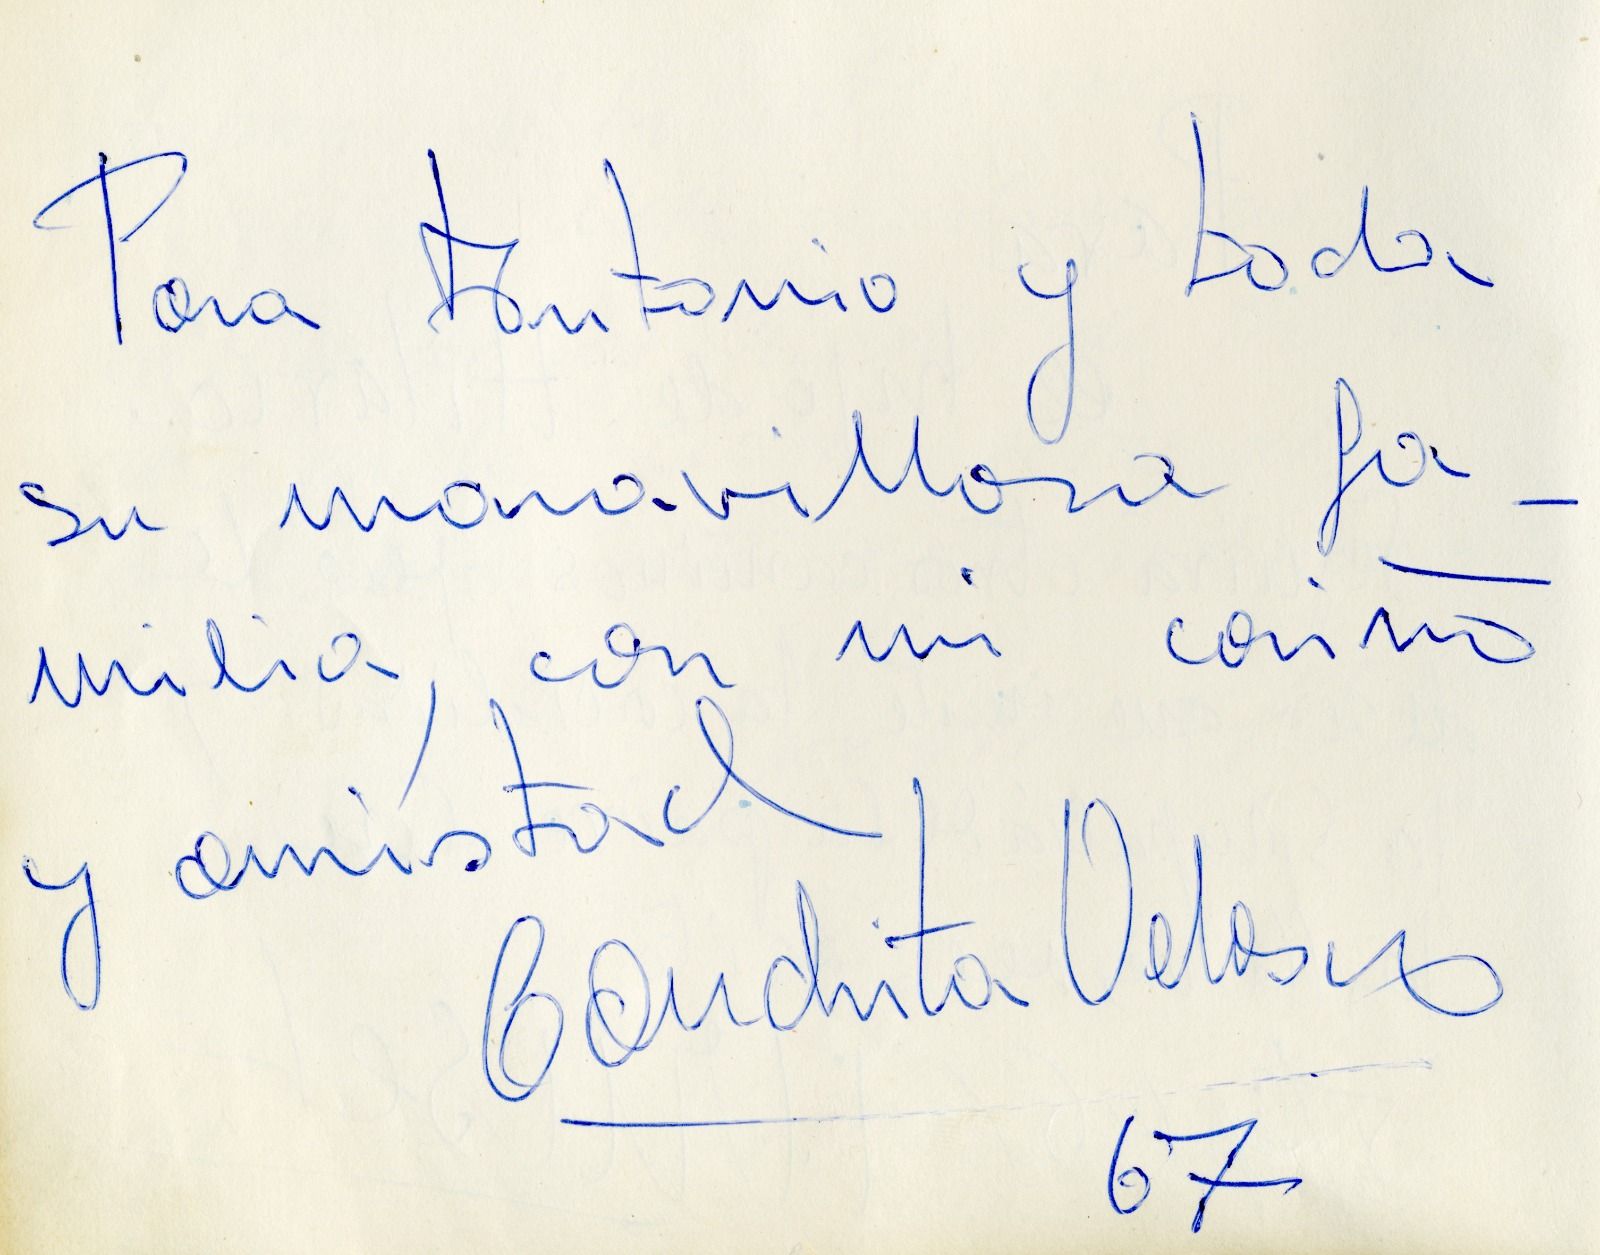 Para Antonio y toda
su maravillosa fa-
milia, con mi cariño
y amistad
Conchita Velasco
67